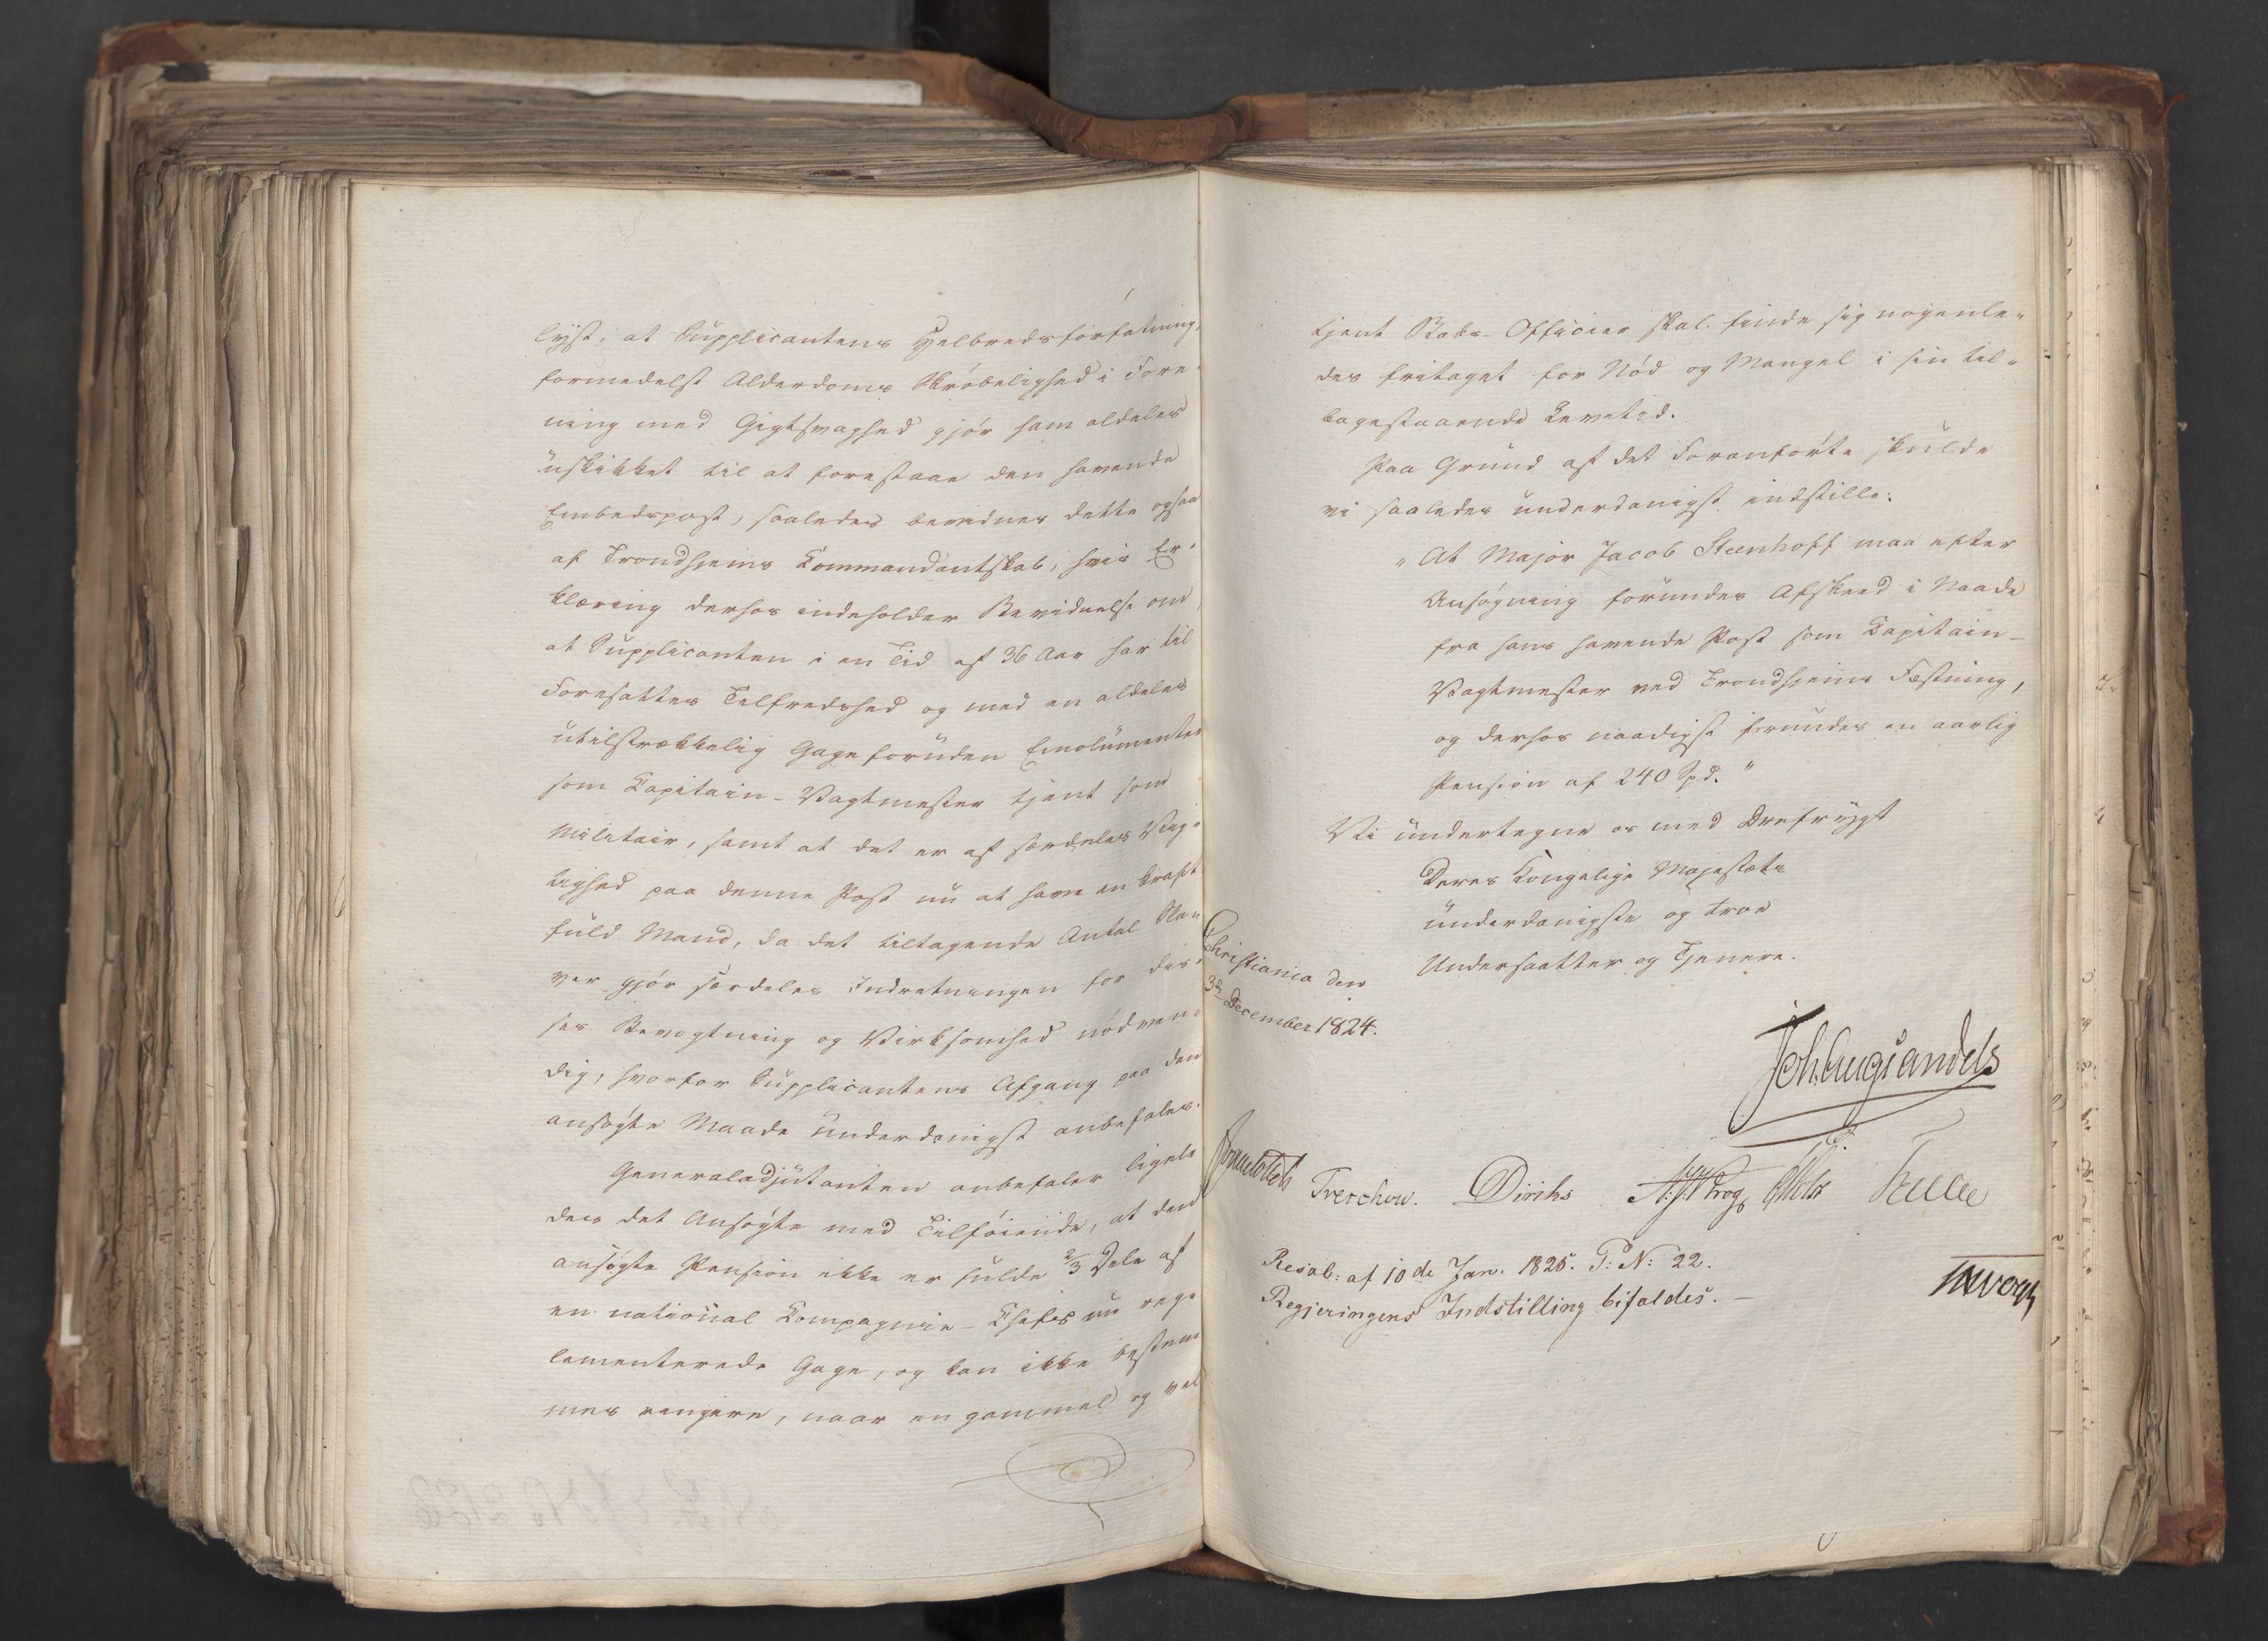 lyst, at Supplicantens Helbredsforfatning,
formedelst Alderdoms Skrøbelighed i Fore-
ning med Gigtsvaghed gjør ham aldeles
uskikket til at forestaae den havende
Embedspost, saaledes bevidnes dette ogsaa
af Trondhjems Commandantskab, hvis Er-
klæring derhos indeholder Bevidnelse om,
at Supplicanten i en Tid af 36 Aar har til
Foresattes Tilfredshed og med en aldeles
utilstrækkelig Gage foruden Emolumenter
som Capitain-Vagtmester tjent som
Militair, samt at det er af særdeles Vig-
tighed paa denne Post nu at have en kraft
fuld Mand, da det tiltagende Antal Sla-
ver gjør særdeles Indretningen for dis-
ses Bevogtning og Virksomhed nødven-
dig, hvorfor Supplicantens Afgang paa den
ansøgte Maade underdanigst anbefales.
Generaladjutanten anbefaler ligele
des det Ansøgte med Tilføiende, at den
ansøgte Pension ikke er fulde 2/3 Dele af
en national Compagnie-Chefs nu reg-
lementerede Gage, og kan ikke bestem
mes ringere, naar en gammel og vel
tjent Stabs-Officier skal finde sig nogenle-
des fritaget for Nød og Mangel i sin til-
bagestaaende Levetid.
Paa Grund af det Foranførte skulde
vi saaledes underdanigst indstille:
"At Major Jacob Steenhoff maa efter
Ansøgning forundes Afskeed i Naade
fra hans havende Post som Capitain-
Vagtmester ved Trondhjems Fæstning,
og derhos naadigst forundes en aarlig
Pension af 240 Spd."
Vi undertegne os med Ærefrygt
Deres Kongelige Majestæts
underdanigste og troe
Undersaatter og Tjenere.
Christiania den
3de December 1824.
Joh. Aug. Sandels
Sommerhielm
Treschow. Diriks A. J. Krog Holst Fasting
Resol: af 10de Jan. 1825. P: N: 22.
Regjeringens Indstilling bifaldes. —